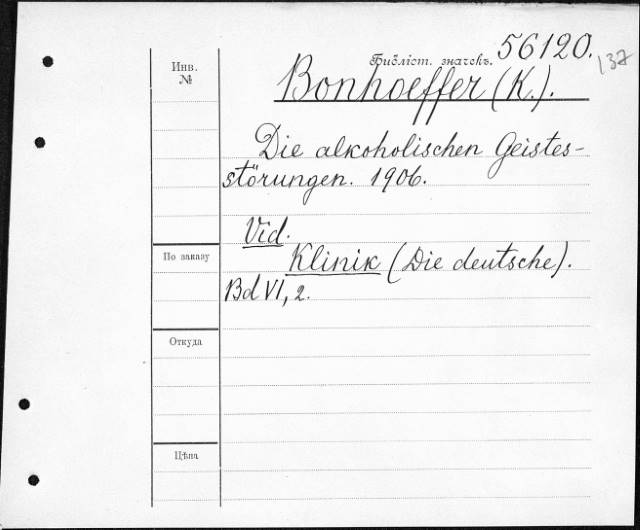 Инв.
№
Библіот. значекъ. 56120.
137
Bonhoeffer (K.).
Die alkoholischen Geistes-
störungen. 1906.
Vid.
Klinik (Die deutsche).
Bd VI, 2.
По заказу
Откуда
Цѣна